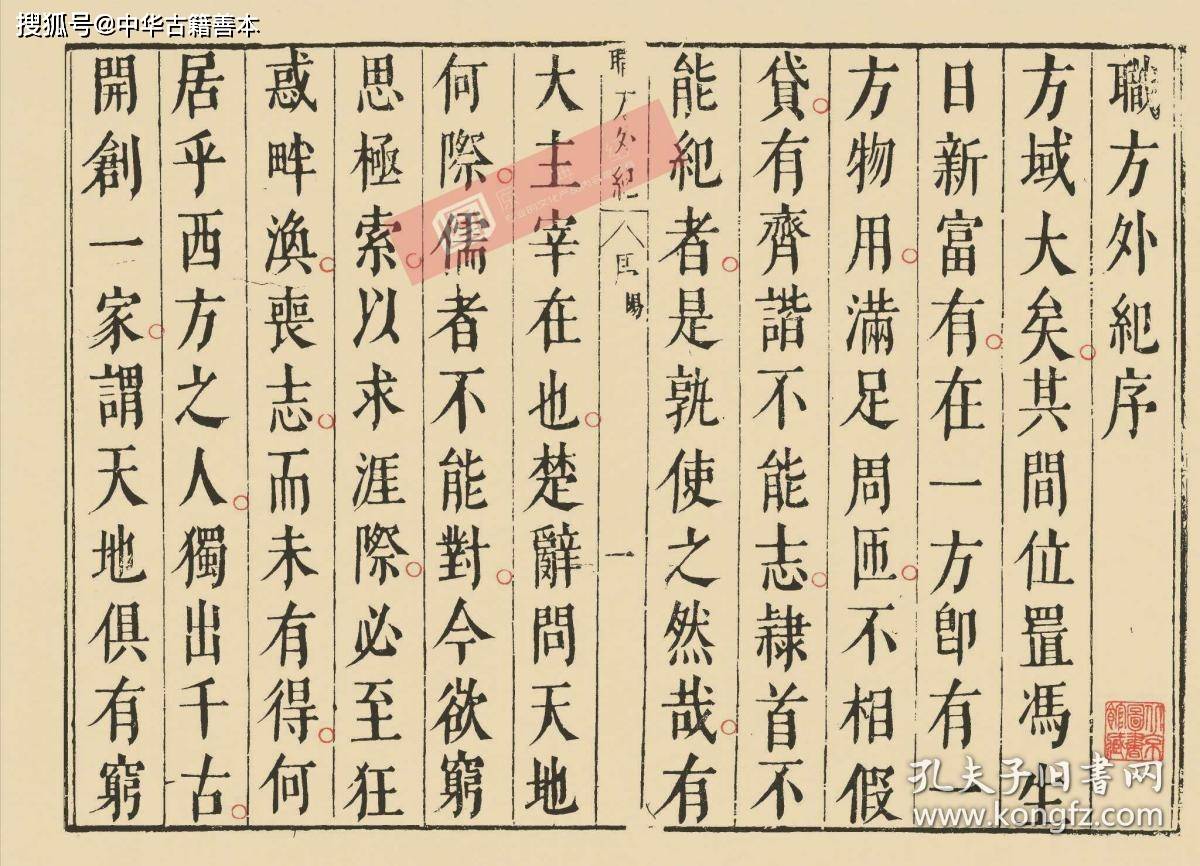 搜狐号@中华古籍善本
職方外紀序
方域大矣其間位置馮生
日新富有在一方卽有一
方物用滿足周匝不相假
貸有齊諧不能志隸首不
能紀者是孰使之然哉有
職方外紀
一
大主宰在也楚辭問天地
何際儒者不能對今欲窮
思極索以求涯際必至狂
惑畔渙喪志而未有得何
居乎西方之人獨出千古
開創一家謂天地俱有窮
北京圖書館藏
孔夫子旧书网
www.kongfz.com